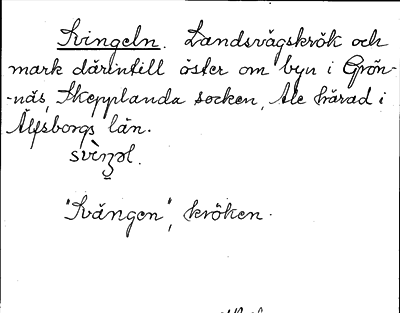 Svingeln. Landsvägskrök och
mark därintill öster om byn i Grön-
-näs, Skepplanda socken, Ale härad i
Älfsborgs län.
"Svängen", kröken.